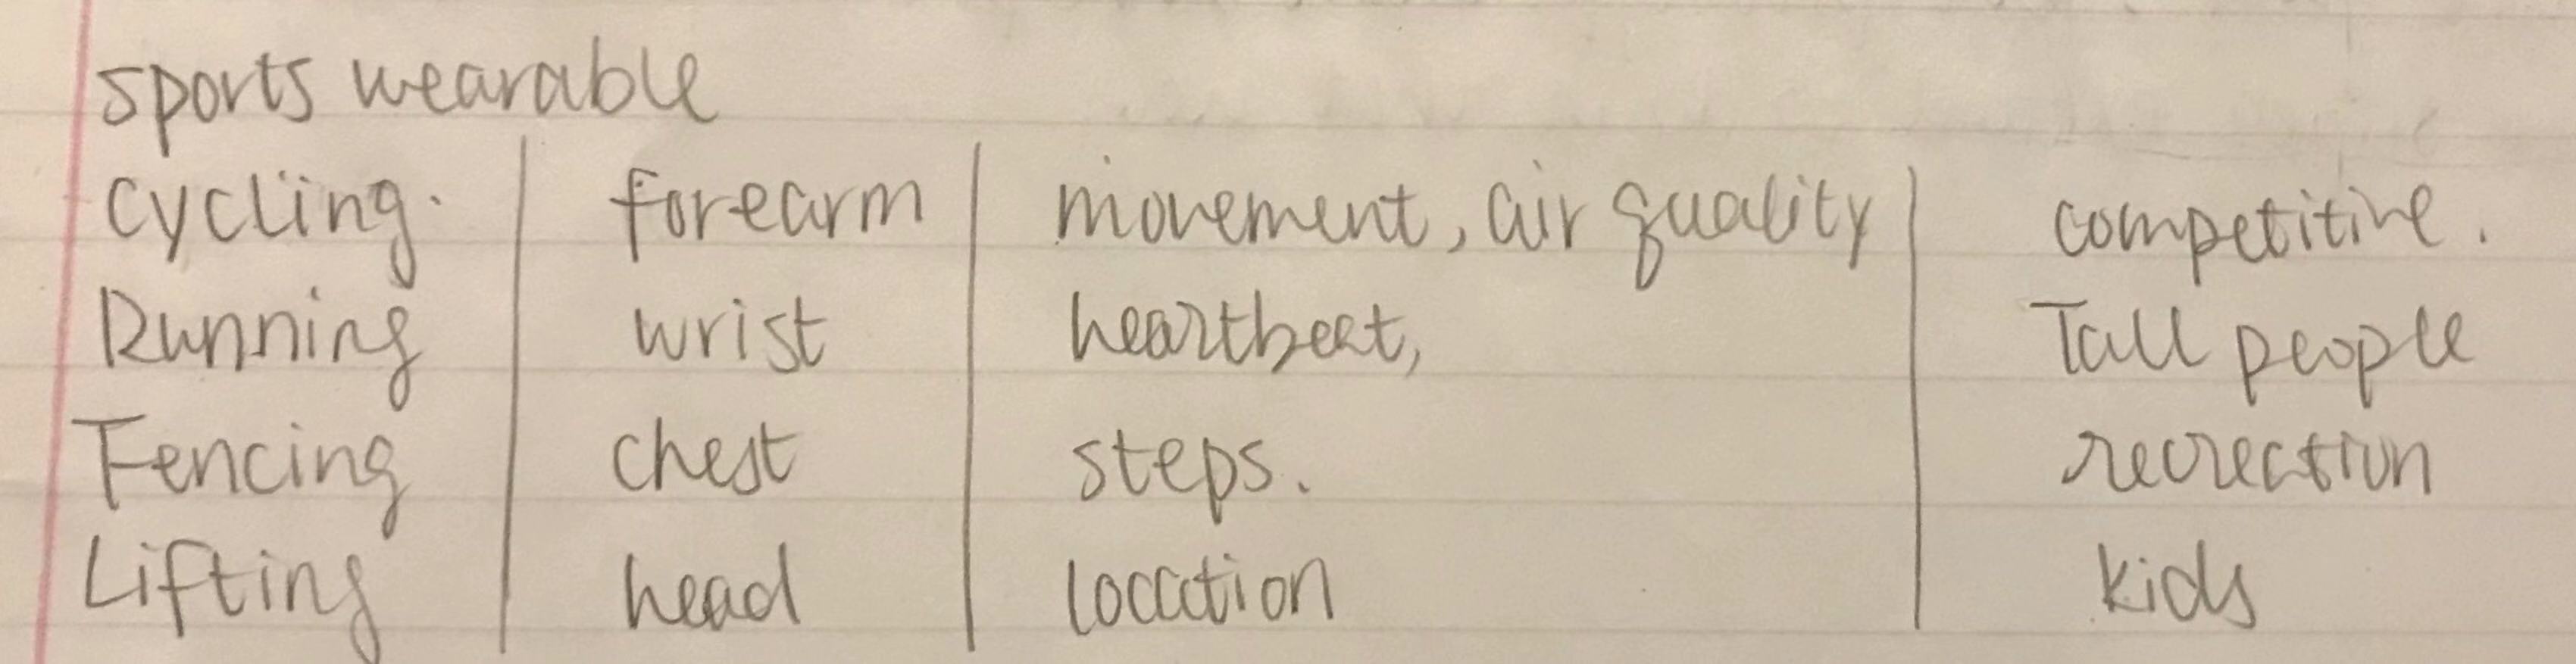 sports wearable
cycling. forearm movement, air quality competitive.
Running wrist heartbeat, Tall people
Fencing chest steps. recreation
Lifting head location kids